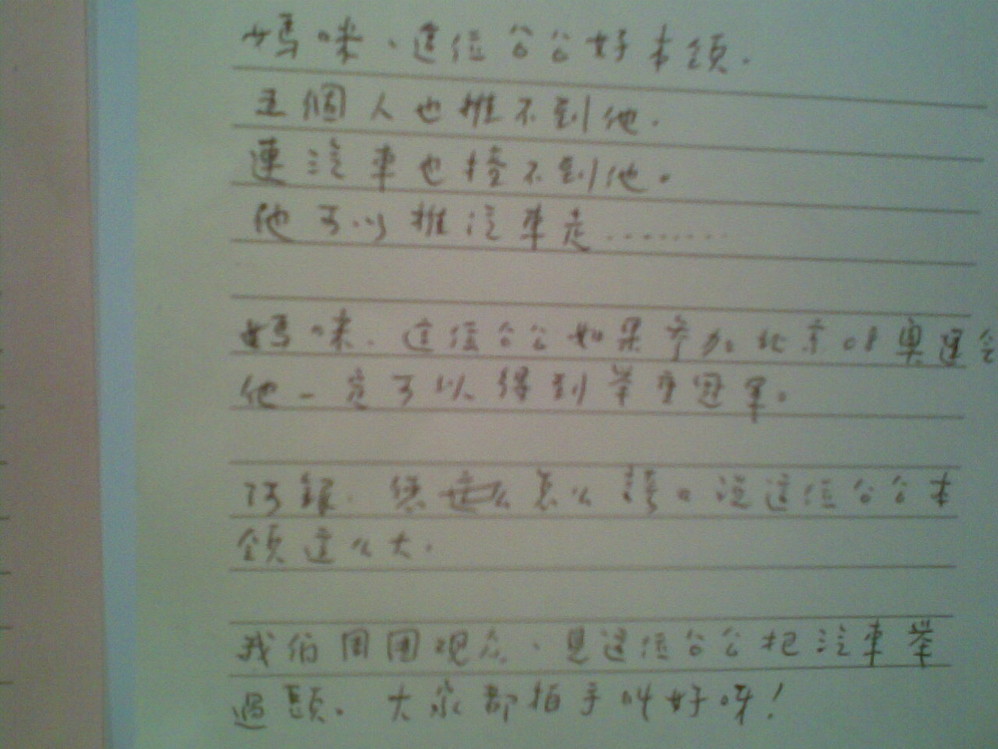 媽咪、這位公公好本領.
五個人也推不到他.
連汽車也撞不到他。
他可以推汽車走........
媽咪、這位公公如果參加北京08奧運會
他一定可以得到举重冠軍。
阿銀. 您怎么誇口說這位公公本
領這么大.
我伯周圍观众、見這位公公把汽車举
過頭。大家都拍手叫好呀!